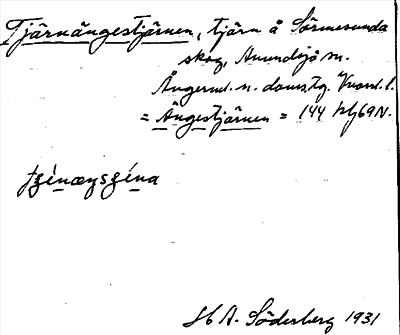 Tjärnängestjärnen, tjärn å Sörmesunda
skog, Anundsjö sn.
Ångerml. n. doms.tg. Vnorrl. l.
= Ängestjärnen = 144 hIj69N.
H A. Söderberg 1931